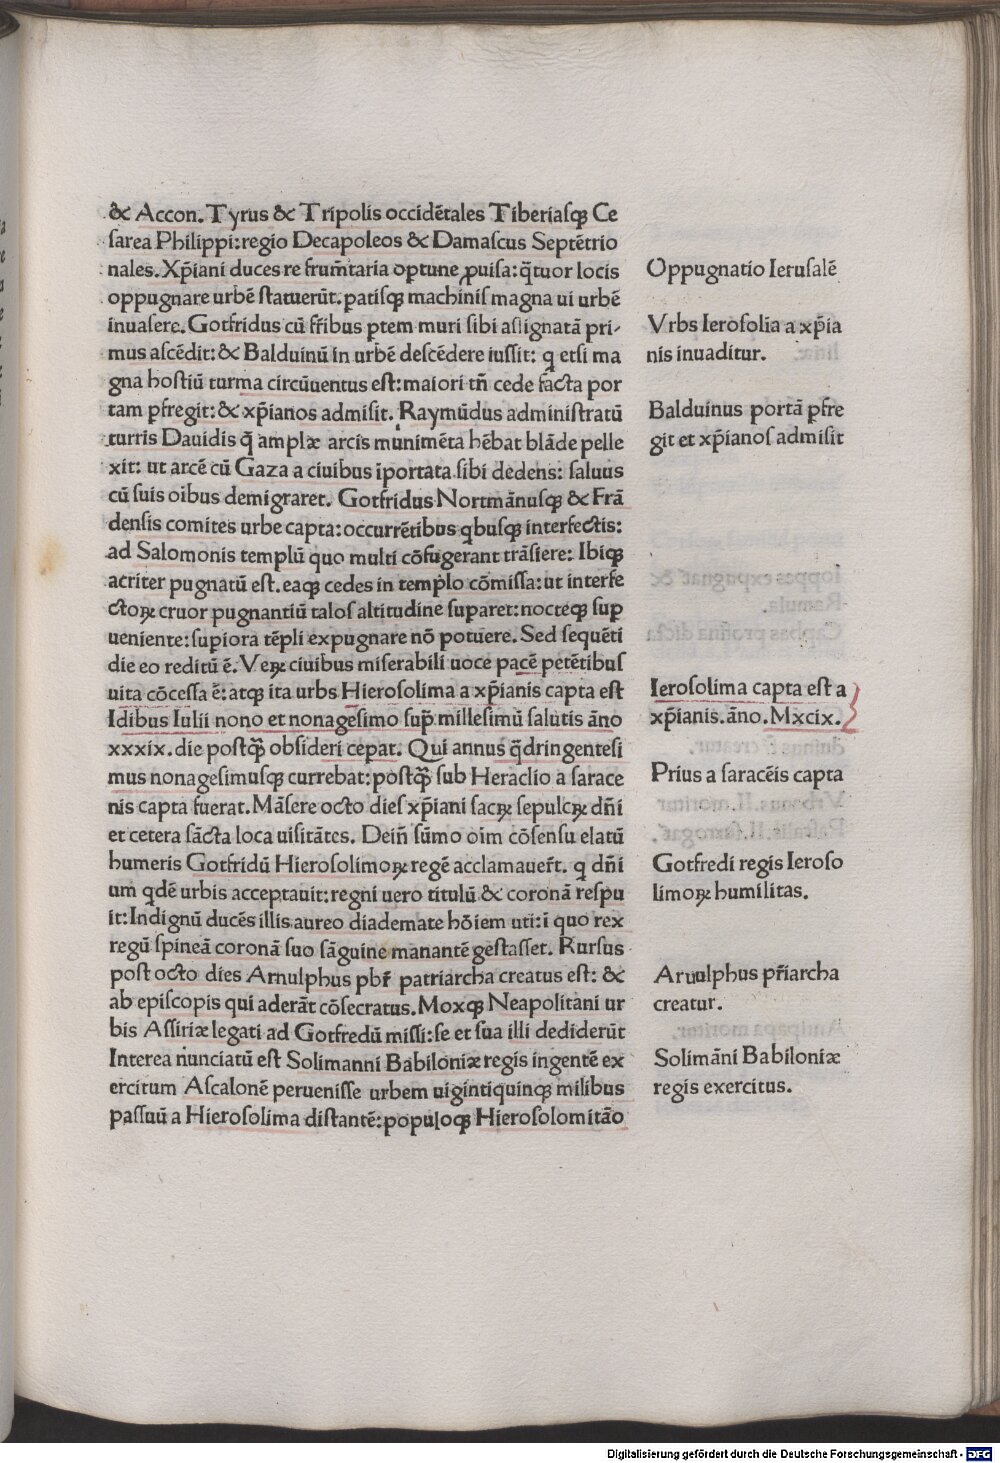 & Accon. Tyrus & Tripolis occidẽtales Tiberiasq; Ce
sarea Philippi: regio Decapoleos & Damascus Septẽtrio
nales. Xp̃iani duces re frum̃taria optune ꝓuisa: q̃tuor locis
oppugnare urbẽ statuerũt. patisq; machinis magna ui urbẽ
inuasere. Gotfridus cũ fr̃ibus ptem muri sibi assignatã pri-
mus ascẽdit: & Balduinũ in urbẽ descẽdere iussit: q etsi ma
gna hostiũ turma circũuentus est: maiori tñ cede fãcta por
tam pfregit: & xp̃ianos admisit. Raymũdus administratũ
turris Dauidis q̃ amplæ arcis munimẽta hẽbat blãde pelle
xit: ut arcẽ cũ Gaza a ciuibus ĩportata sibi dedens: saluus
cũ suis oibus demigraret. Gotfridus Nortmãnusq; & Frã
densis comites urbe capta: occurrẽtibus qbusq; interfectis:
ad Salomonis templũ quo multi cõfugerant trãsiere: Ibiq;
acriter pugnatũ est. eaq; cedes in templo cõmissa: ut interfe
ctoꝝ cruor pugnantiũ talos altitudine suparet: nocteq; sup
ueniente: supiora tẽpli expugnare nõ potuere. Sed sequẽti
die eo reditũ ẽ. Veꝝ ciuibus miserabili uoce pacẽ petẽtibus
uita cõcessa ẽ: atq; ita urbs Hierosolima a xp̃ianis capta est
Idibus Iulii nono et nonagesimo sup̃ millesimũ salutis ãno
xxxix. die postq̃ obsideri cepat. Qui annus q̃dringentesi
mus nonagesimusq; currebat: postq̃ sub Heraclio a sarace
nis capta fuerat. Mãsere octo dies xp̃iani sacꝝ sepulcꝝ dñi
et cetera sãcta loca uisitãtes. Deiñ sũmo oĩm cõsensu elatũ
humeris Gotfridũ Hierosolimoꝝ regẽ acclamauer̃t. q dñi
um qdẽ urbis acceptauit: regni uero titulũ & coronã respu
it: Indignũ ducẽs illis aureo diademate hõiem uti: ĩ quo rex
regũ spineã coronã suo sãguine manantẽ gestasset. Rursus
post octo dies Arnulphus pbr̃ patriarcha creatus est: &
ab episcopis qui aderãt cõsecratus. Moxq; Neapolitani ur
bis Assiriæ legati ad Gotfredũ missi: se et sua illi dediderũt
Interea nunciatũ est Solimanni Babiloniæ regis ingentẽ ex
ercitum Ascalonẽ peruenisse urbem uigintiquinq; milibus
passuũ a Hierosolima distantẽ: populoq; Hierosolomitão
Oppugnatio Ierusalẽ
Vrbs Ierosolia a xp̃ia
nis inuaditur.
Balduinus portã pfre
git et xp̃ianos admisit
Ierosolima capta est a
xp̃ianis. ãno. Mxcix.
Prius a saracẽis capta
Gotfredi regis Ieroso
limoꝝ humilitas.
Aruulphus pr̃iarcha
creatur.
Solimãni Babiloniæ
regis exercitus.
Digitalisierung gefördert durch die Deutsche Forschungsgemeinschaft - DFG